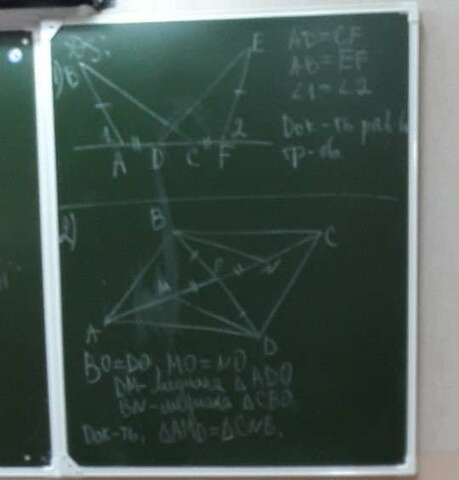 1)
B
E
1
2
A D C F
AD = CF
AB = EF
∠1 = ∠2
Док-ть
тр-ов
2)
B
C
M
O
N
A
D
BO=DO, MO=NO
DM- медиана △ADO
BN-медиана △CBO
Док-ть, △AMD=△CNB.